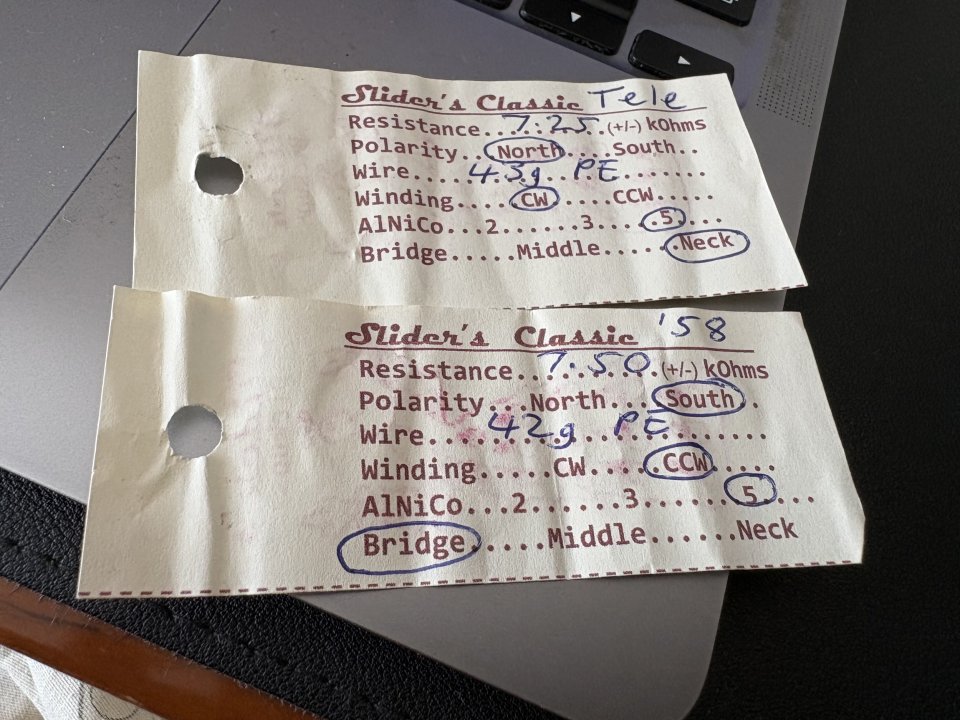 Slider's Classic Tele
Resistance...7.25..(+/-) kOhms
Polarity..North....South..
Wire....43g..PE.......
Winding....CW....CCW.....
AlNiCo...2......3.....5....
Bridge.....Middle......Neck
Slider's Classic '58
Resistance...7.50.(+/-) kOhms
Polarity...North....South..
Wire....42g..PE.......
Winding.....CW.....CCW.....
AlNiCo...2......3......5....
Bridge.....Middle......Neck